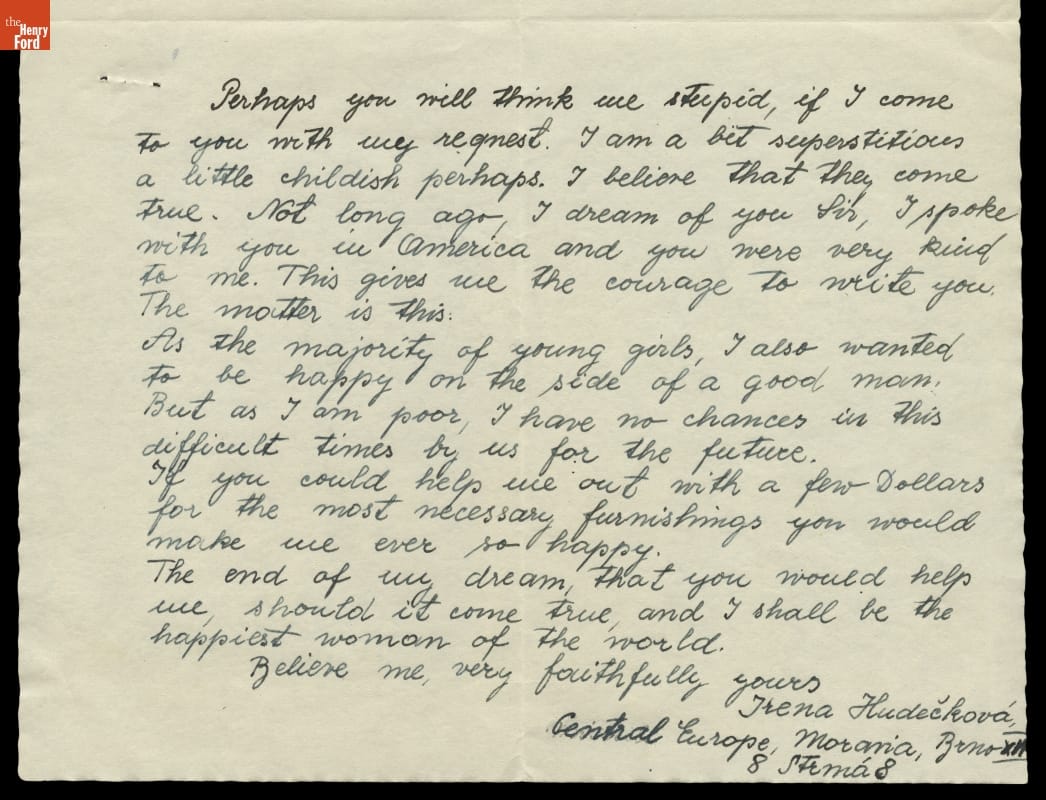 the
Henry
Ford
Perhaps you will think me stupid, if I come
to you with my request. I am a bit superstitious
a little childish perhaps. I believe that they come
true. Not long ago, I dream of you Sir, I spoke
with you in America and you were very kind
to me. This gives me the courage to write you.
The matter is this:
As the majority of young girls, I also wanted
to be happy on the side of a good man.
But as I am poor, I have no chances in this
difficult times by us for the future.
If you could help me out with a few Dollars
for the most necessary furnishings you would
make me ever so happy.
The end of my dream, that you would help
me, should it come true, and I shall be the
happiest woman of the world.
Believe me, very faithfully yours
Irena Hudečková,
Central Europe, Moravia, Brno
8 Strmá 8